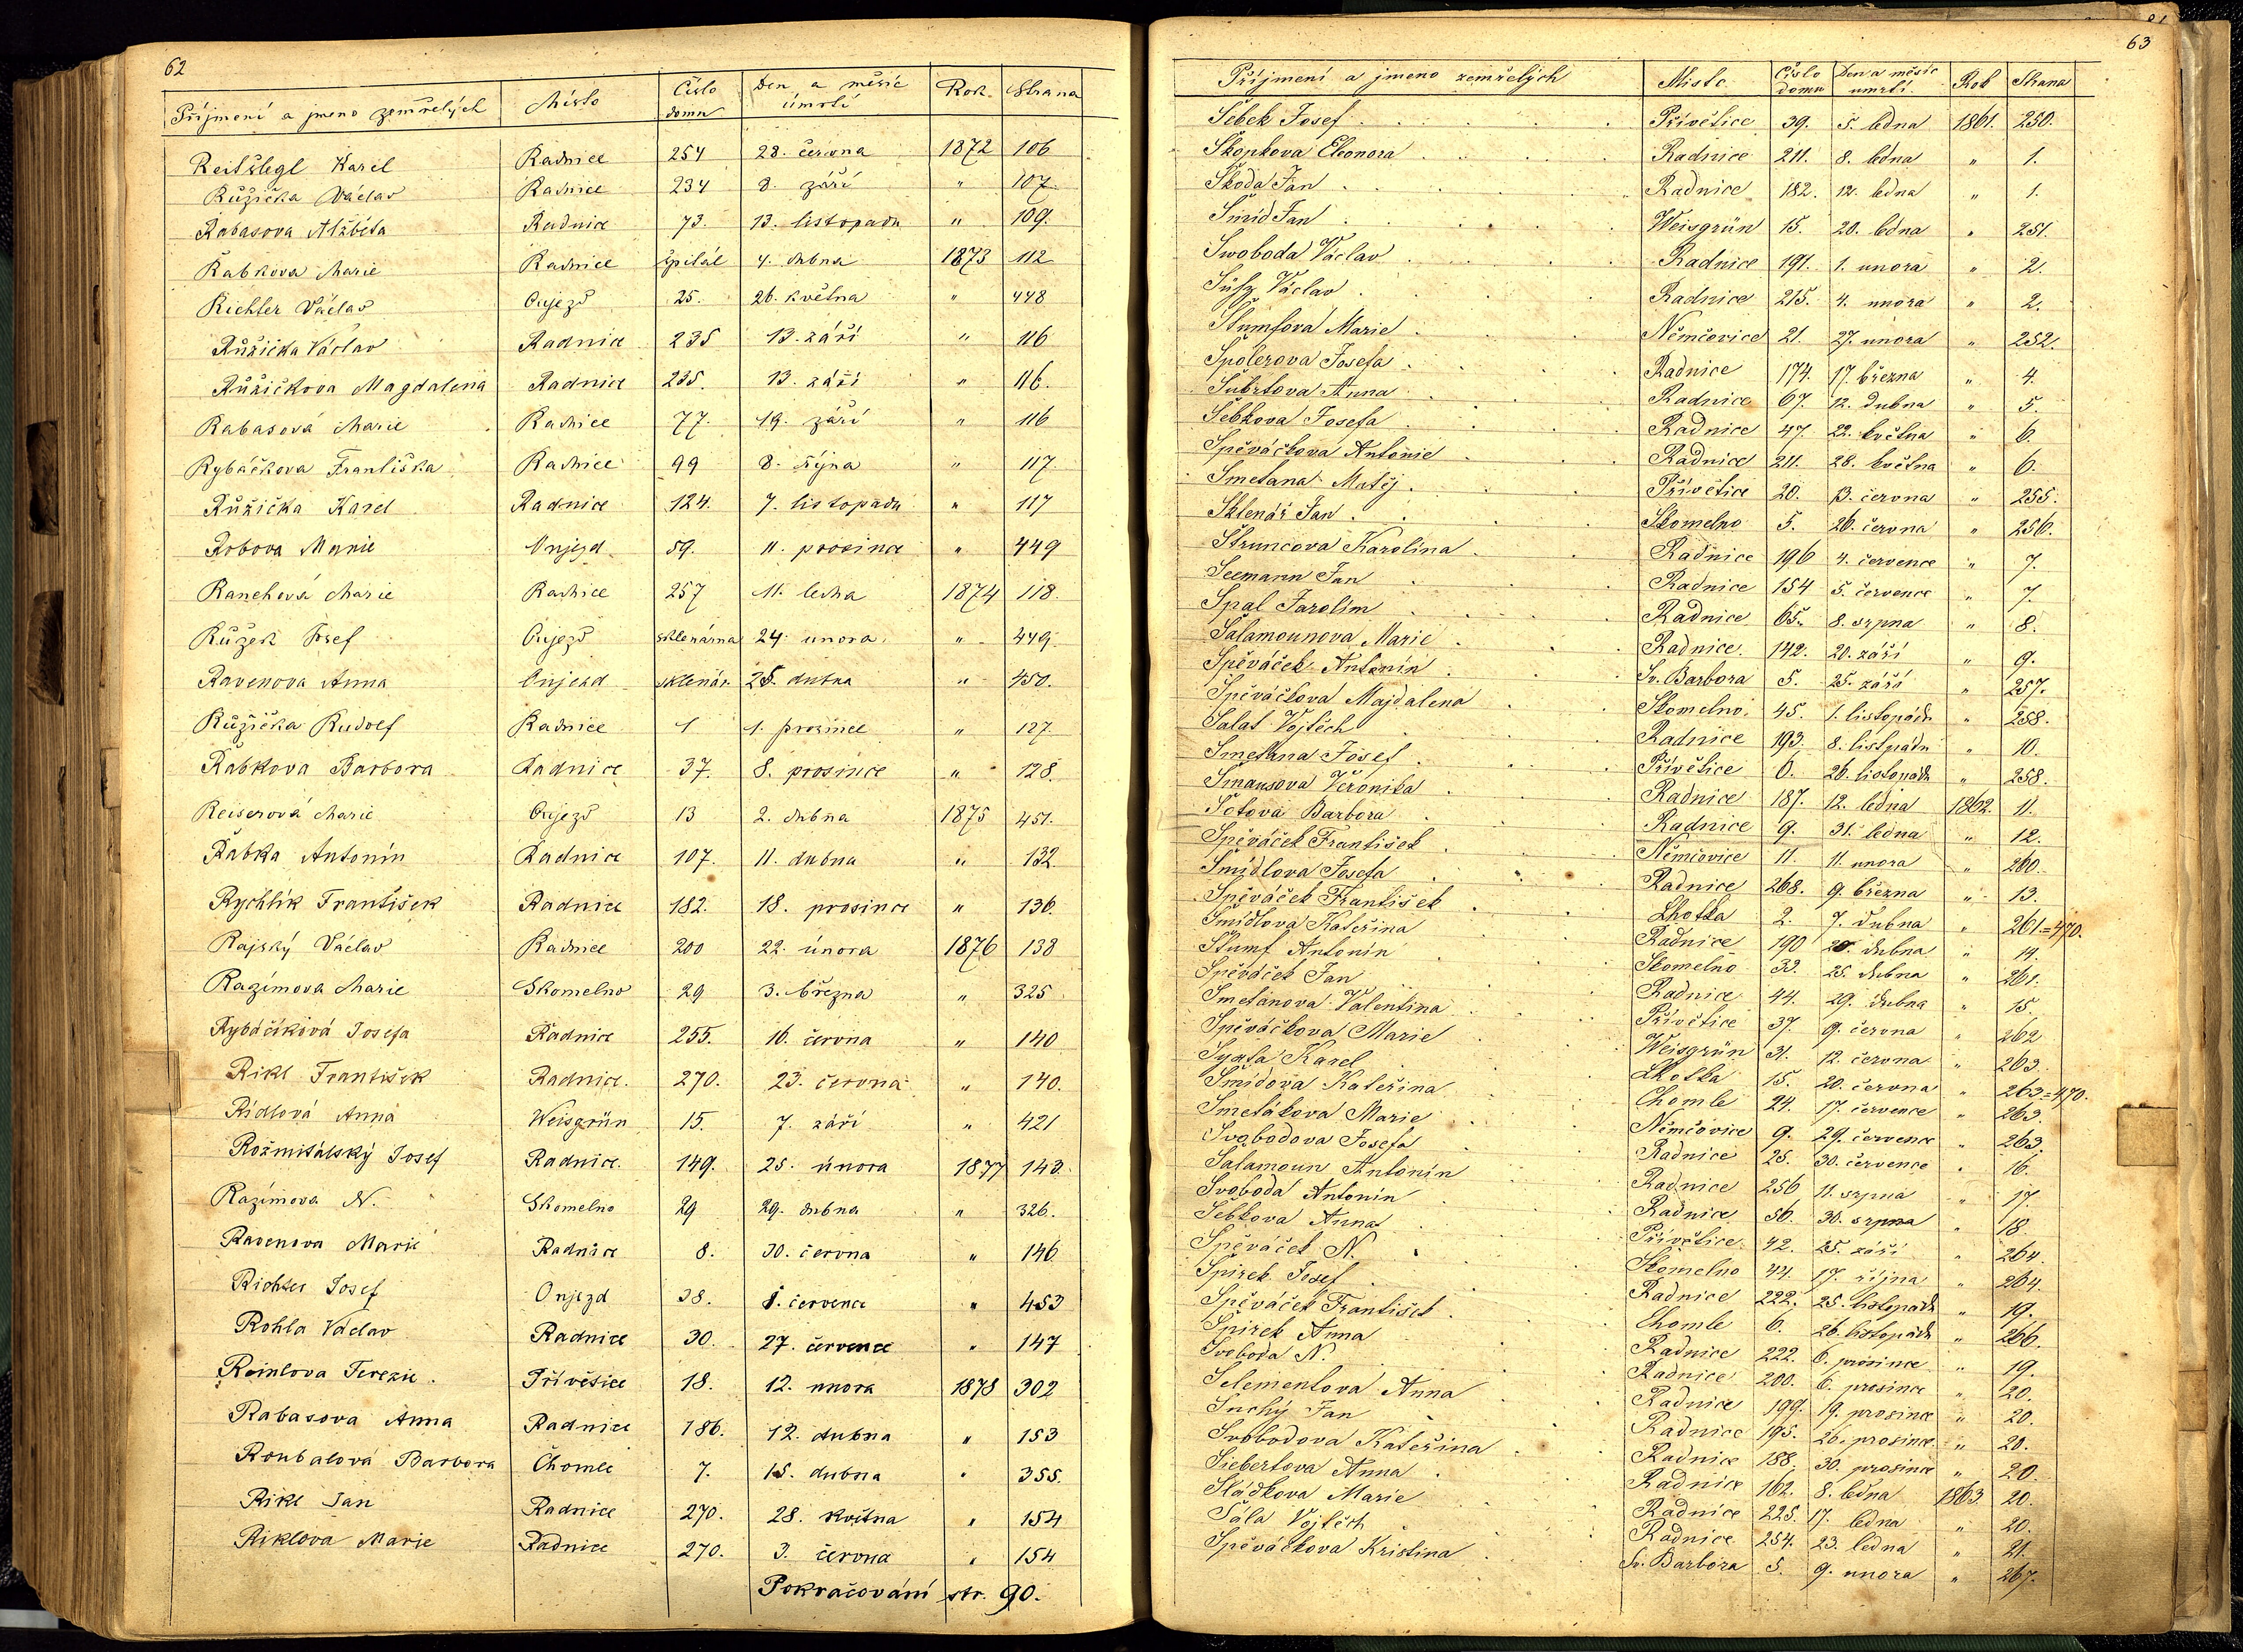 62
Příjmení a jmeno zemřelých Místo Číslo domu Den a měsíc úmrtí Rok Strana
Reitšlegl Karel Radnice 254 28. června 1872 106
Růžička Václav Radnice 234 8. září " 107.
Rabasova Alžběta Radnice 73. 13. listopadu " 109.
Řabkova Marie Radnice špitál 4. dubna 1873 112
Richter Václav Oujezd 25. 26. května " 448
Růžička Václav Radnice 235 13. září " 116
Růžičkova Magdalena Radnice 235. 13. září " 116.
Rabasová Marie Radnice 77. 19. září " 116
Rybáčkova Františka Radnice 99 8. října " 117.
Růžička Karel Radnice 124. 7. listopadu " 117
Robova Marie Oujezd 59. 11. prosince " 449
Ranehová Marie Radnice 257 11. ledna 1874 118.
Růžek Josef Oujezd sklenárna 24. unora " 449.
Ravenova Anna Oujezd sklenár. 25. dubna " 450.
Růžička Rudolf Radnice 1 1. prosince " 127.
Řabkova Barbora Radnice 37. 8. prosince " 128.
Reiserová Marie Oujezd 13 2. dubna 1875 451.
Řabka Antonín Radnice 107. 11. dubna " 132.
Rychlík František Radnice 182. 18. prosince " 136.
Rajský Václav Radnice 200 22. února 1876 138
Razímova Marie Skomelno 29 3. března " 325
Rybáčiková Josefa Radnice 255. 16. června " 140
Rikl František Radnice. 270. 23. června " 140.
Rídlová Anna Weisgrün 15. 7. září " 421
Rožmitálský Josef Radnice. 149. 25. února 1877 143.
Razímova N. Skomelno 29 29. dubna " 326.
Ravenova Marie Radnice 8. 30. června " 146
Richter Josef Oujezd 38. 1. července " 453
Rohla Václav Radnice 30. 27. července " 147
Reinlova Terezie. Přívětice 18. 12. unora 1878 302
Rabasova Anna Radnice 186. 12. dubna " 153
Roubalová Barbora Chomle 7. 15. dubna " 355.
Rikl Jan Radnice 270. 28. května " 154
Riklova Marie Radnice 270. 3. června " 154
Pokračování str. 90.
63
Příjmení a jmeno zemřelých Místo Číslo domu Den a měsíc umrtí. Rok Strana
Šebek Josef Přívětice 39. 5. ledna 1861. 250.
Škopkova Eleonora Radnice 211. 8. ledna " 1.
Škoda Jan Radnice 182. 12. ledna " 1.
Šmíd Jan Weisgrün 15. 20. ledna " 251.
Swoboda Václav Radnice 191. 1. unora " 2.
Václav Radnice 215. 4. unora " 2.
Štumfova Marie Němčovice 21. 27. unora " 252.
Špolerova Josefa Radnice 174. 17. března " 4.
Šubrtova Anna Radnice 67. 12. dubna " 5.
Šebkova Josefa Radnice 47. 22. května " 6.
Spěváčkova Antonie Radnice 211. 28. května " 6.
Smetana Matěj Přívětice 20. 13. června " 255.
Sklenář Jan Skomelno 5. 26. června " 256.
Štruncova Karolína Radnice 196 4. července " 7.
Seemann Jan Radnice 154 5. července " 7.
Spal Jarolím Radnice 65. 8. srpna " 8.
Šalamounova Marie Radnice 142. 20. září " 9.
Spěváček Antonín Sv. Barbora 5. 25. září " 257.
Spěváčkova Majdalena Skomelno. 45. 1. listopadu " 258.
Salat Vojtěch Radnice 193. 8. listpadu " 10.
Smetana Josef Přívětice 6. 26. listopadu " 258.
Smausova Veronika Radnice 187. 12. ledna 1862. 11.
Šotova Barbora Radnice 9. 31. ledna " 12.
Spěváček František Němčovice 11. 11. unora " 260.
Šmídlova Josefa Radnice 268. 9. března " 13.
Spěváček František Lhotka 2. 7. dubna " 261=470.
Šmídlova Kateřina Radnice 190 20. dubna " 14.
Štumf Antonin Skomelno 33. 25. dubna " 261.
Spěváček Jan Radnice 44. 29. dubna " 15.
Smetanova Valentina Přívětice 37. 9. června " 262
Spěváčkova Marie Weisgrün 31. 12. června " 263.
Syxta Karel Lhotka 15. 20. června " 263=470.
Šmídova Kateřina Chomle 24. 17. července " 263.
Smetákova Marie Němčovice 9. 29. července " 263.
Svobodova Josefa Radnice 25. 30. července " 16.
Šalamoun Antonín Radnice 256 11. srpna " 17.
Svoboda Antonín Radnice 56. 30. srpna " 18.
Šebkova Anna Přívětice 42. 25. září " 264.
Spěváček N. Skomelno 44. 17. října " 264.
Spirek Josef Radnice 222. 25. listopadu " 19.
Spěváček František Chomle 6. 26. listopadu " 266.
Spirek Anna Radnice 222. 6. prosince " 19.
Svoboda N. Radnice 200. 6. prosince " 20.
Selementova Anna Radnice 199. 19. prosince " 20.
Suchý Jan Radnice 195. 26. prosince " 20.
Svobodova Kateřina Radnice 188. 30. prosince " 20.
Siebertova Anna Radnice 162. 8. ledna 1863. 20.
Sládkova Marie Radnice 225. 17. ledna " 20.
Šála Vojtěch Radnice 254. 23. ledna " 21.
Spěváčkova Kristina Sv. Barbora 5. 9. unora " 267.